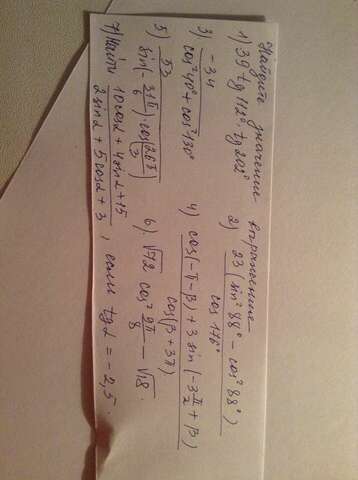 Найдите значение выражение
1) 39 tg 112° · tg 202°
2) 23 (sin² 88° - cos² 88°) / cos 176°
3) -34 / cos² 40° + cos² 130°
4) cos(-π - β) + 3 sin(-3π/2 + β) / cos(β + 3π)
5) 53 / sin(-31π/6) · cos(26π/3)
6) √72 cos² 9π/8 - √18.
7) Найти 10 cos α + 4 sin α + 15 / 2 sin α + 5 cos α + 3, если tg α = -2,5.